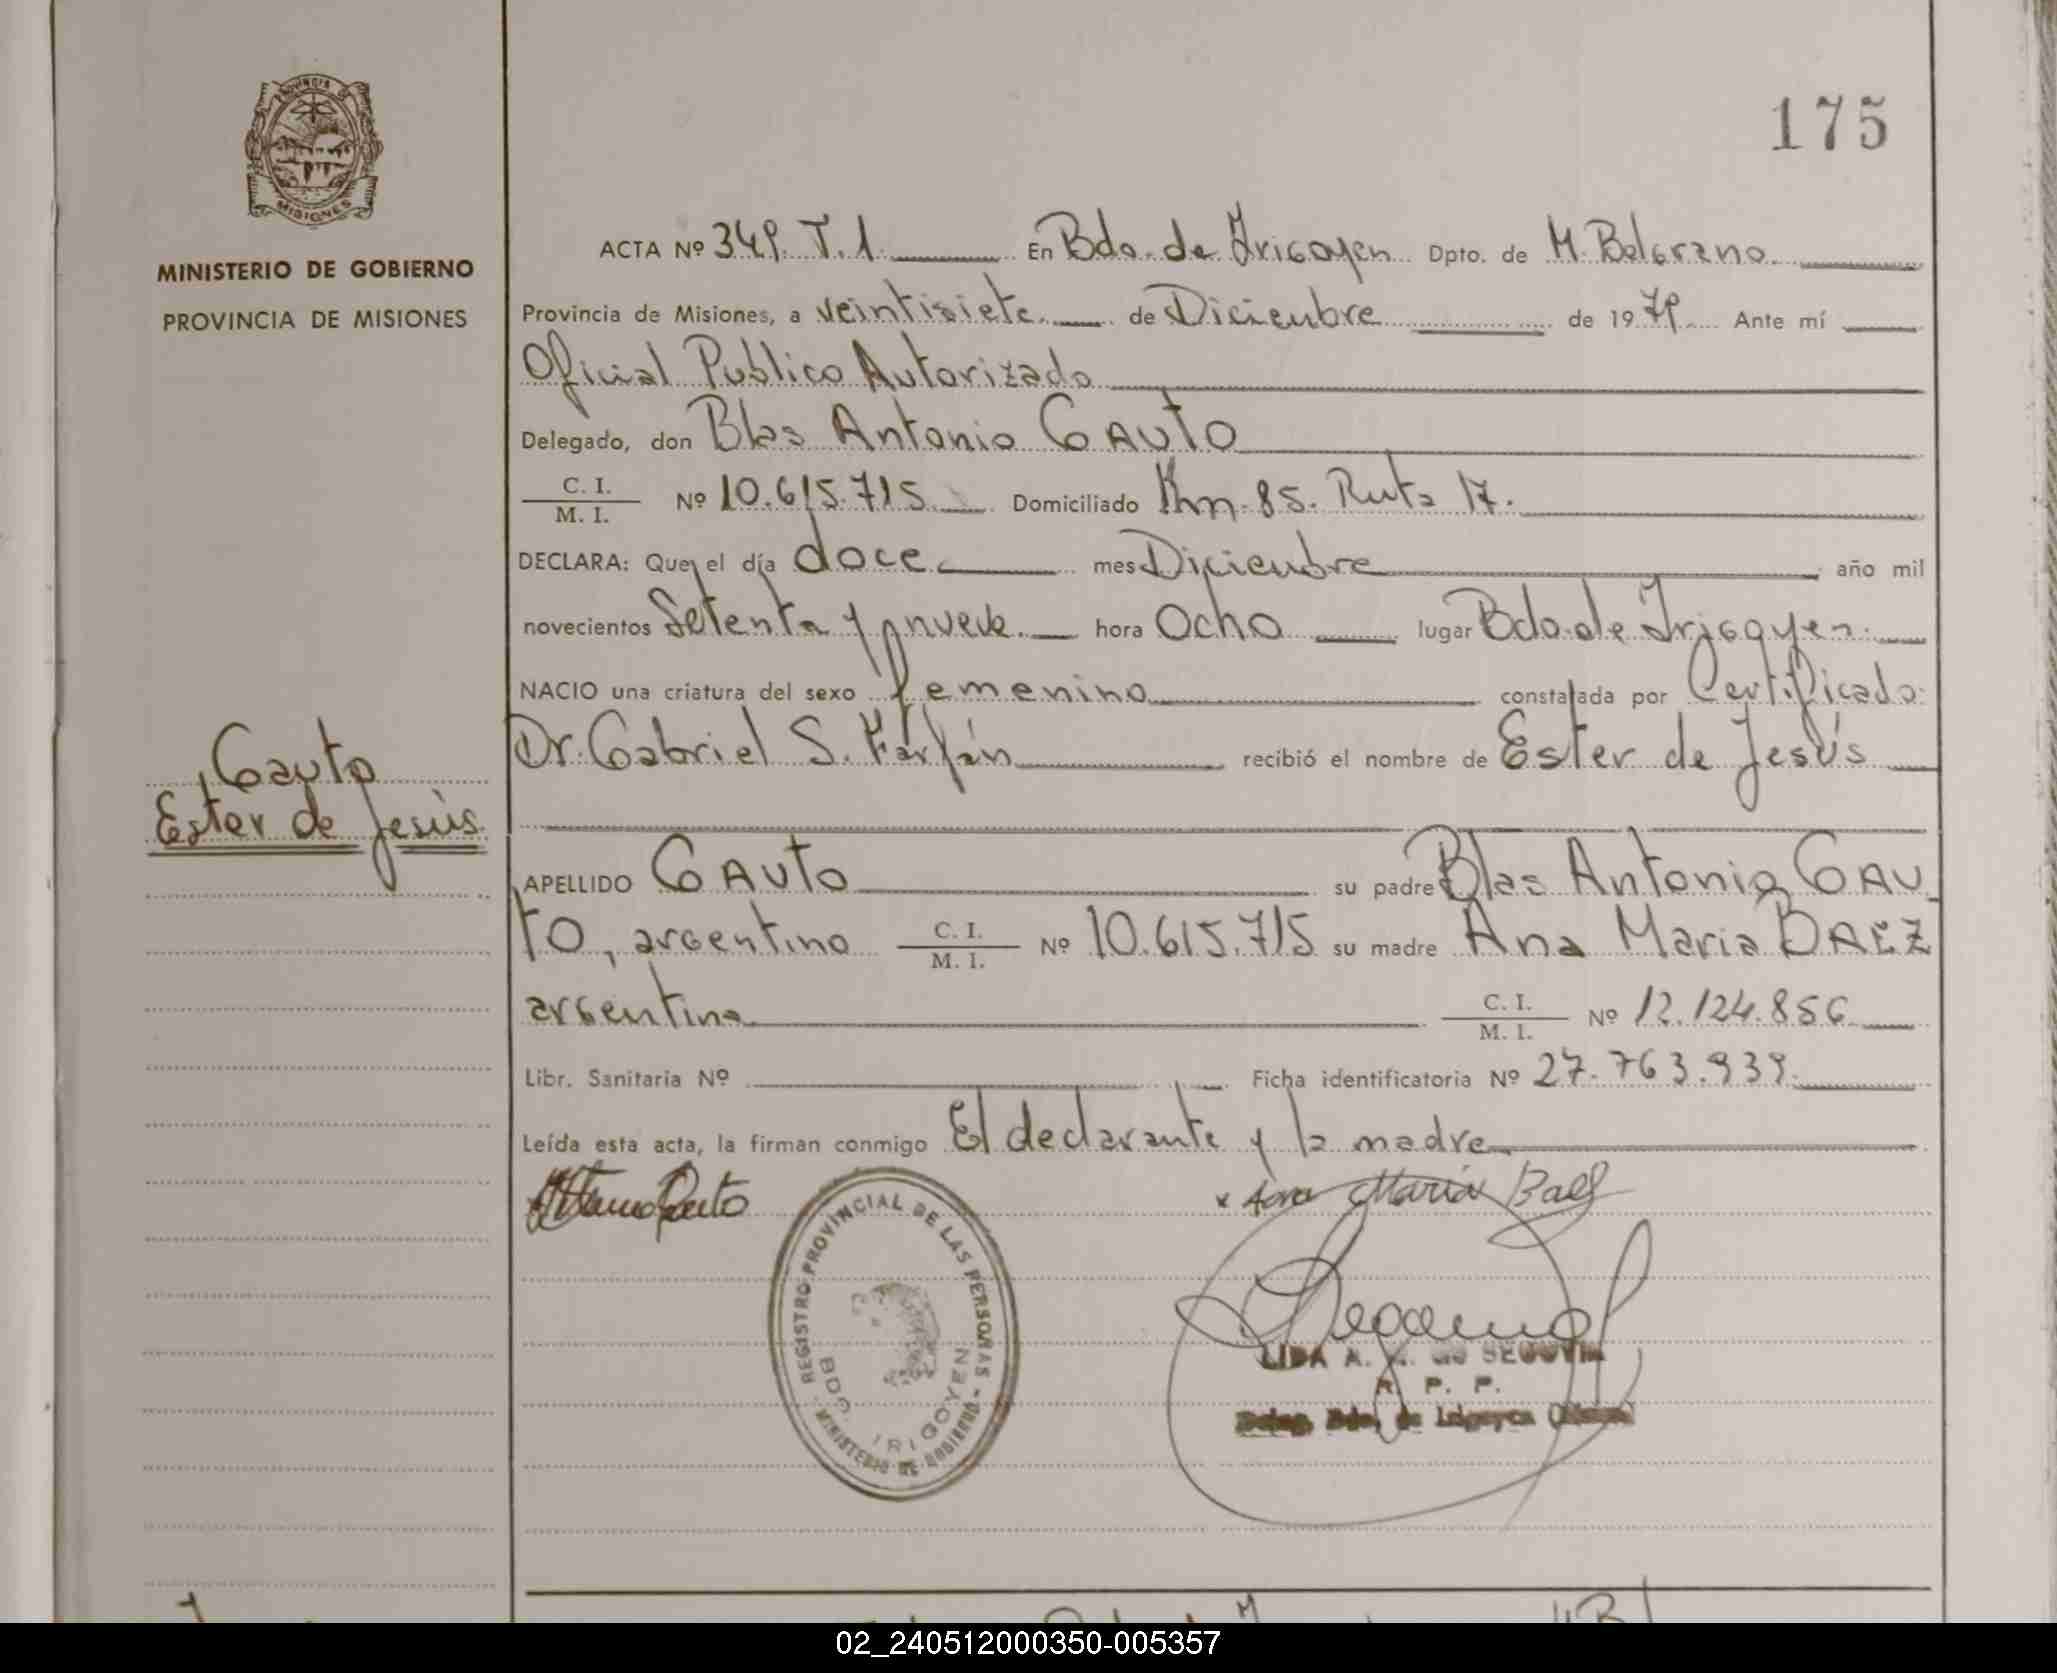 175
PROVINCIA DE
MISIONES
MINISTERIO DE GOBIERNO
PROVINCIA DE MISIONES
ACTA Nº 349. T. 1. En Bdo. de Irigoyen Dpto. de M. Belgrano.
Provincia de Misiones, a veintisiete. de Diciembre de 19 79 Ante mí
Oficial Publico Autorizado
Delegado, don Blas Antonio GAUTO
C. I.
M. I. Nº 10.615.715. Domiciliado Km. 85. Ruta 17.
DECLARA: Que el día doce mes Diciembre año mil
novecientos Setenta y nueve. hora Ocho lugar Bdo. de Irigoyen.
NACIO una criatura del sexo femenino constatada por Certificado
Dr. Gabriel S. Farfán recibió el nombre de Ester de Jesús
Gauto
Ester de Jesús
APELLIDO GAUTO su padre Blas Antonio GAU
TO, argentino C. I.
M. I. Nº 10.615.715 su madre Ana Maria BAEZ
argentina C. I.
M. I. Nº 12.124.856
Libr. Sanitaria Nº Ficha identificatoria Nº 27.763.939.
Leída esta acta, la firman conmigo El declarante y la madre
x Ana Maria Baez
REGISTRO PROVINCIAL DE LAS PERSONAS - MINISTERIO DE GOBIERNO
BDO. IRIGOYEN
LIDA A. DE SEGOVIA
R. P. P.
Deleg. Bdo. de Irigoyen
02_240512000350-005357